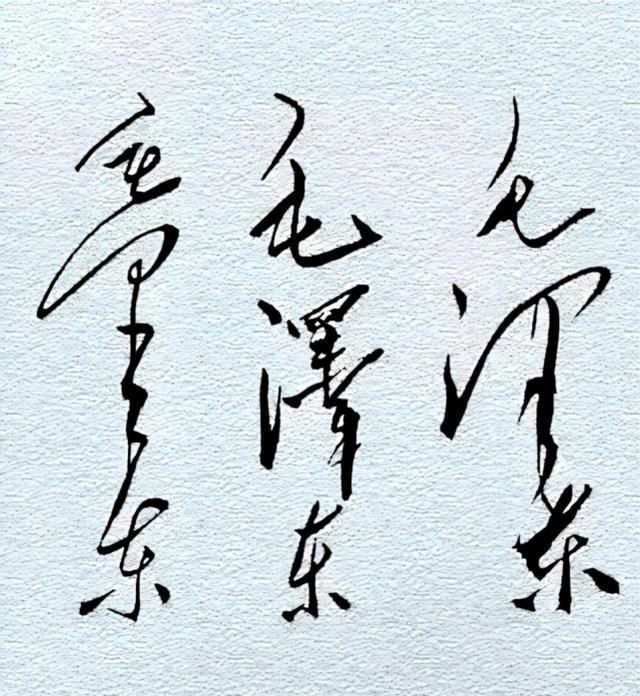 毛泽东
毛澤东
毛泽东